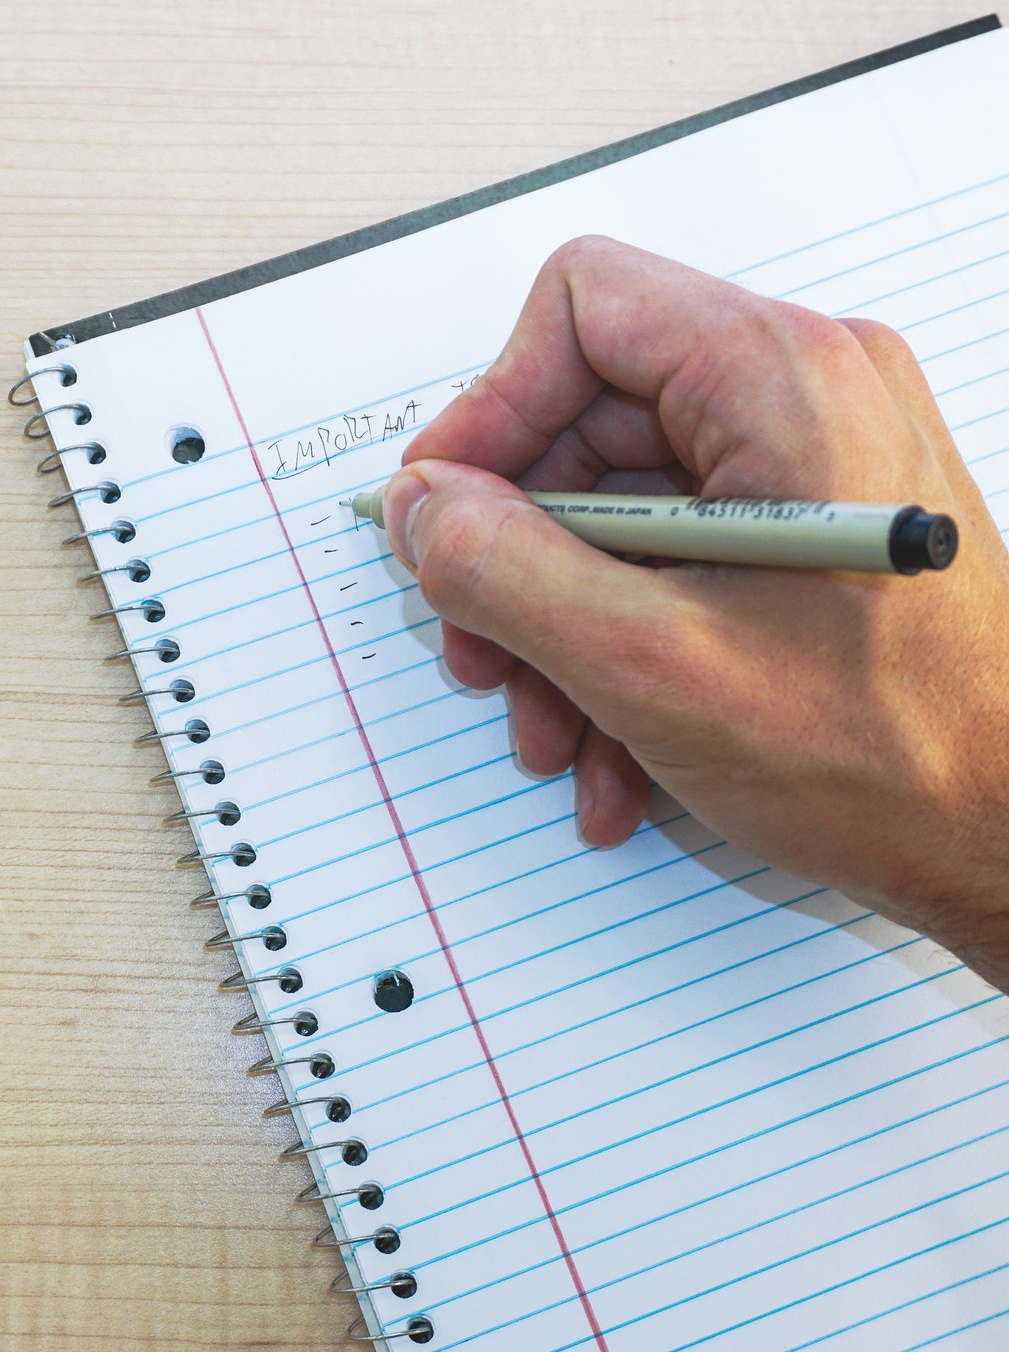 IMPORTANT
-
-
-
-
-
DUCTS CORP. MADE IN JAPAN 0 84511 31837 5